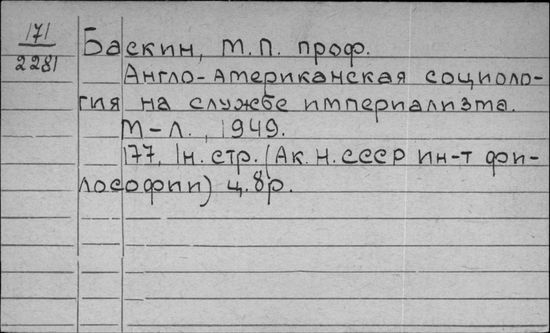 171
2281
Баскин, М.П. проф.
Англо-Американская социоло-
гия на службе империализма.
М-Л., 1949.
177, 1н. стр. (Ак. Н. СССР ин-т фи-
лософии) ц. 8р.